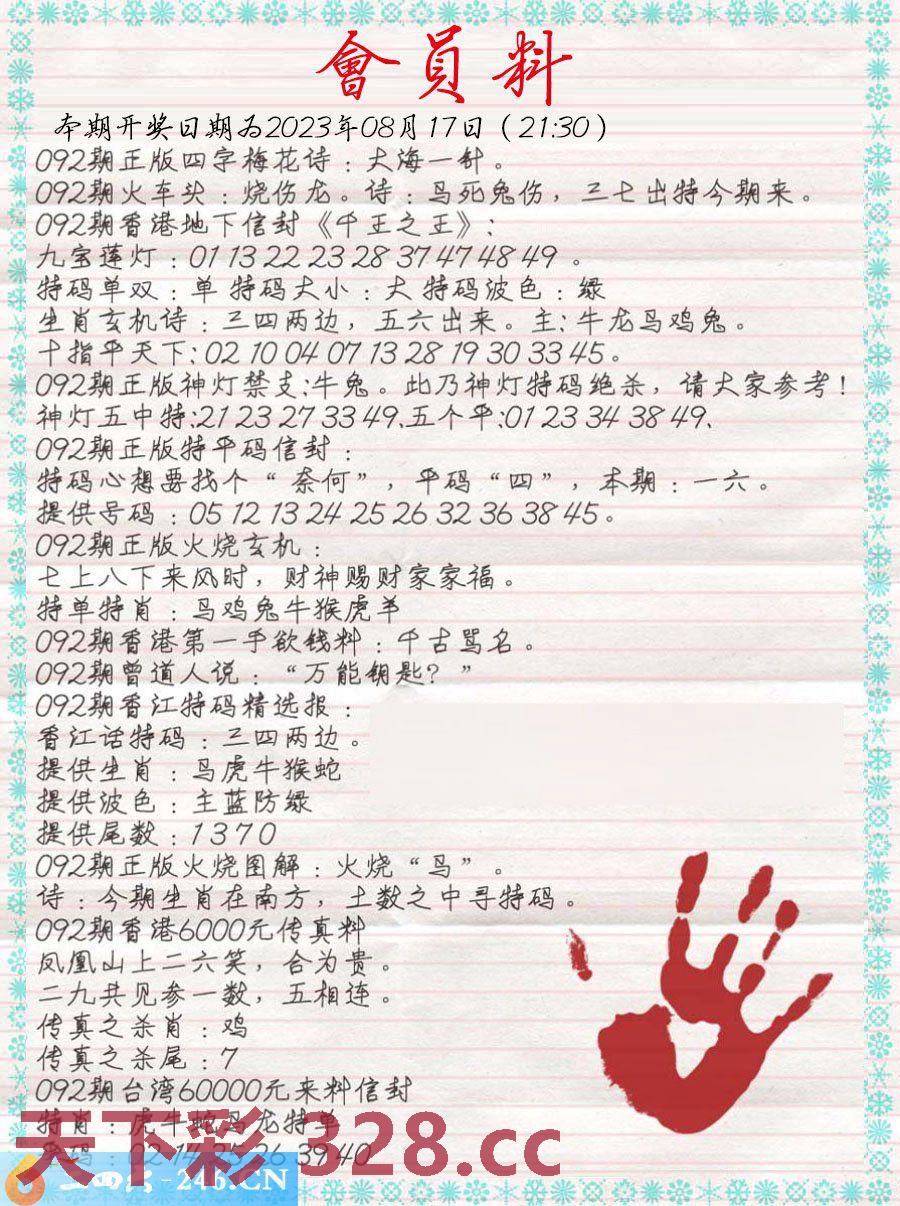 會員料
本期开奖日期为2023年08月17日（21:30）
092期正版四字梅花诗：大海一针。
092期火车头：烧伤龙。诗：鸟死兔伤，三七出特今期来。
092期香港地下信封《千王之王》:
九宝莲灯：01 13 22 23 28 37 47 48 49 。
特码单双：单 特码大小：大 特码波色：绿
生肖玄机诗：三四两边，五六出来。主:牛龙鸟鸡兔。
十指平天下:02 10 04 07 13 28 19 30 33 45。
092期正版神灯禁支:牛兔。此乃神灯特码绝杀，请大家参考！
神灯五中特:21 23 27 33 49.五个平:01 23 34 38 49.
092期正版特平码信封：
特码心想要找个“奈何”，平码“四”，本期：一六。
提供号码：05 12 13 24 25 26 32 36 38 45。
092期正版火烧玄机：
七上八下来风时，财神赐财家家福。
特单特肖：鸟鸡兔牛猴虎羊
092期香港第一手欲钱料：千古骂名。
092期曾道人说：“万能钥匙？”
092期香江特码精选报：
香江话特码：三四两边。
提供生肖：鸟虎牛猴蛇
提供波色：主蓝防绿
提供尾数：1 3 7 0
092期正版火烧图解：火烧“鸟”。
诗：今期生肖在南方，土数之中寻特码。
092期香港6000元传真料
凤凰山上二六笑，合为贵。
二九共见参一数，五相连。
传真之杀肖：鸡
传真之杀尾：7
092期台湾60000元来料信封
特肖：虎牛蛇鸟龙特单
码：02 14 25 26 39 40
天下彩 328.cc
-246.CN